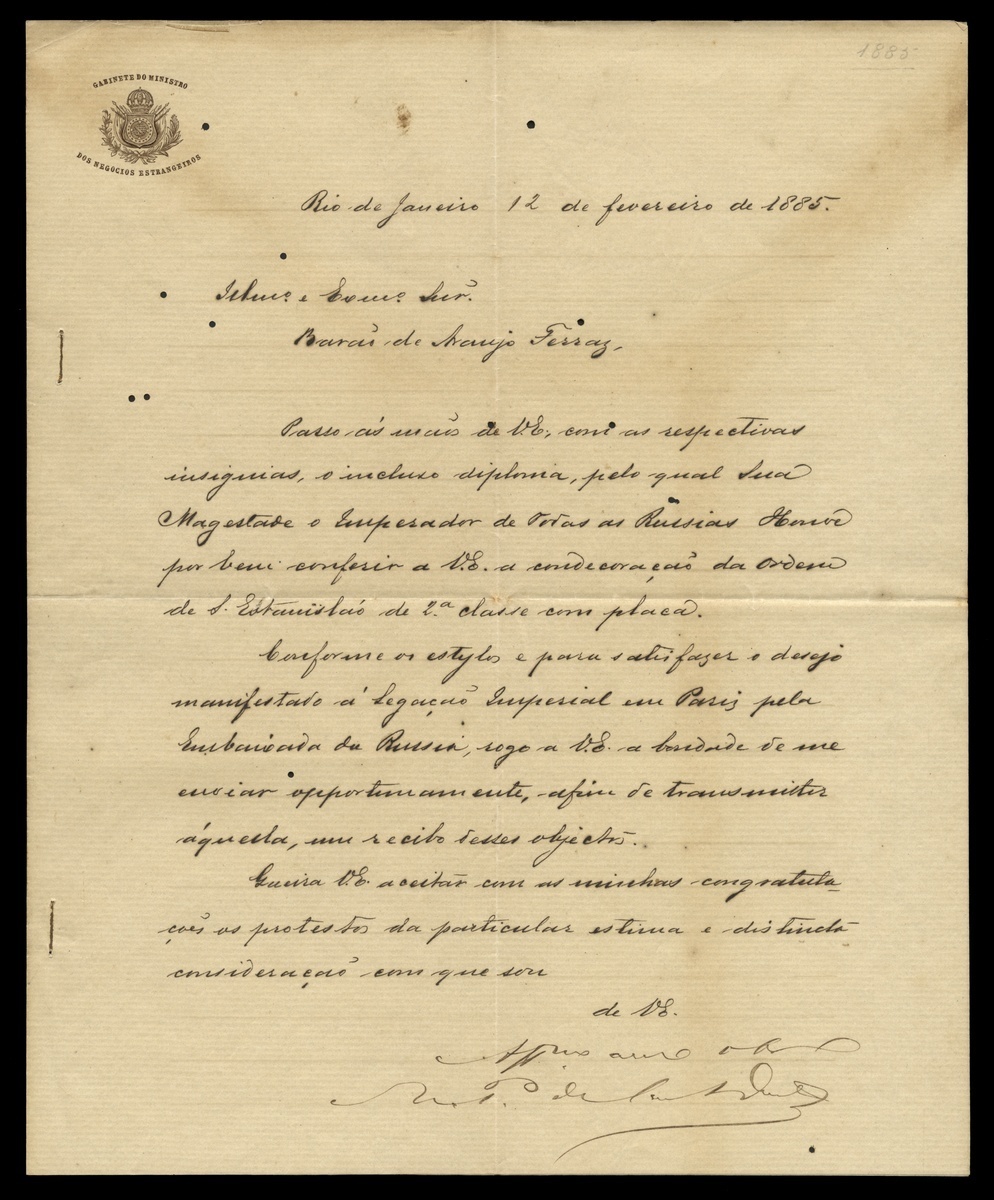 1885
GABINETE DO MINISTRO
DOS NEGOCIOS ESTRANGEIROS
Rio de Janeiro 12 de fevereiro de 1885.
Illmo. e Exmo. Snr.
Barão de Araujo Ferraz,
Passo ás mãos de V.E., com as respectivas
insignias, o incluso diploma, pelo qual Sua
Magestade o Imperador de Todas as Russias Houve
por bem conferir a V.E. a condecoração da Ordem
de S. Estanisláo de 2.ª classe com placa.
Conforme os estylos e para satisfazer o desejo
manifestado á Legação Imperial em Pariz pela
Embaixada da Russia, rogo a V.E. a bondade de me
enviar opportunamente, afim de transmittir
áquella, um recibo desses objectos.
Queira V.E. aceitar com as minhas congratula-
ções os protestos da particular estima e distincta
consideração com que sou
de V.E.